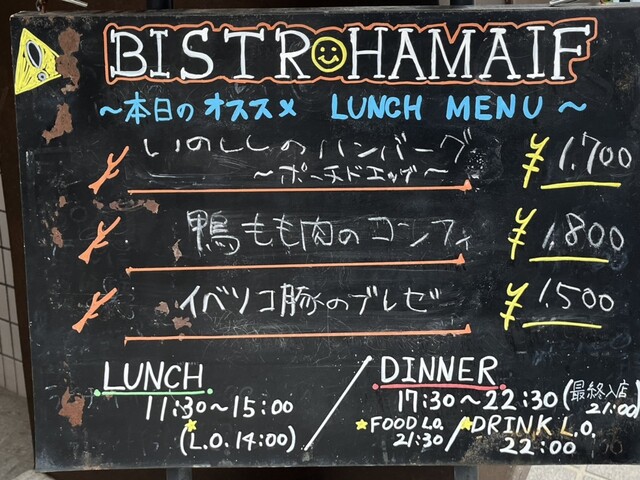 BISTRO HAMAIF
～本日のオススメ LUNCH MENU～
いのししのハンバーグ ¥1,700
～ポーチドエッグ～
鴨もも肉のコンフィ ¥1,800
イベリコ豚のブレゼ ¥1,500
LUNCH
11:30～15:00
(L.O. 14:00)
DINNER
17:30～22:30(最終入店 21:00)
★FOOD L.O. 21:30 / ★DRINK L.O. 22:00